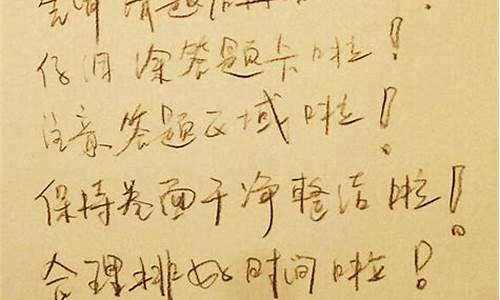 审题啦！
仔细涂答题卡啦！
注意答题区域啦！
保持卷面干净整洁啦！
合理排好时间啦！